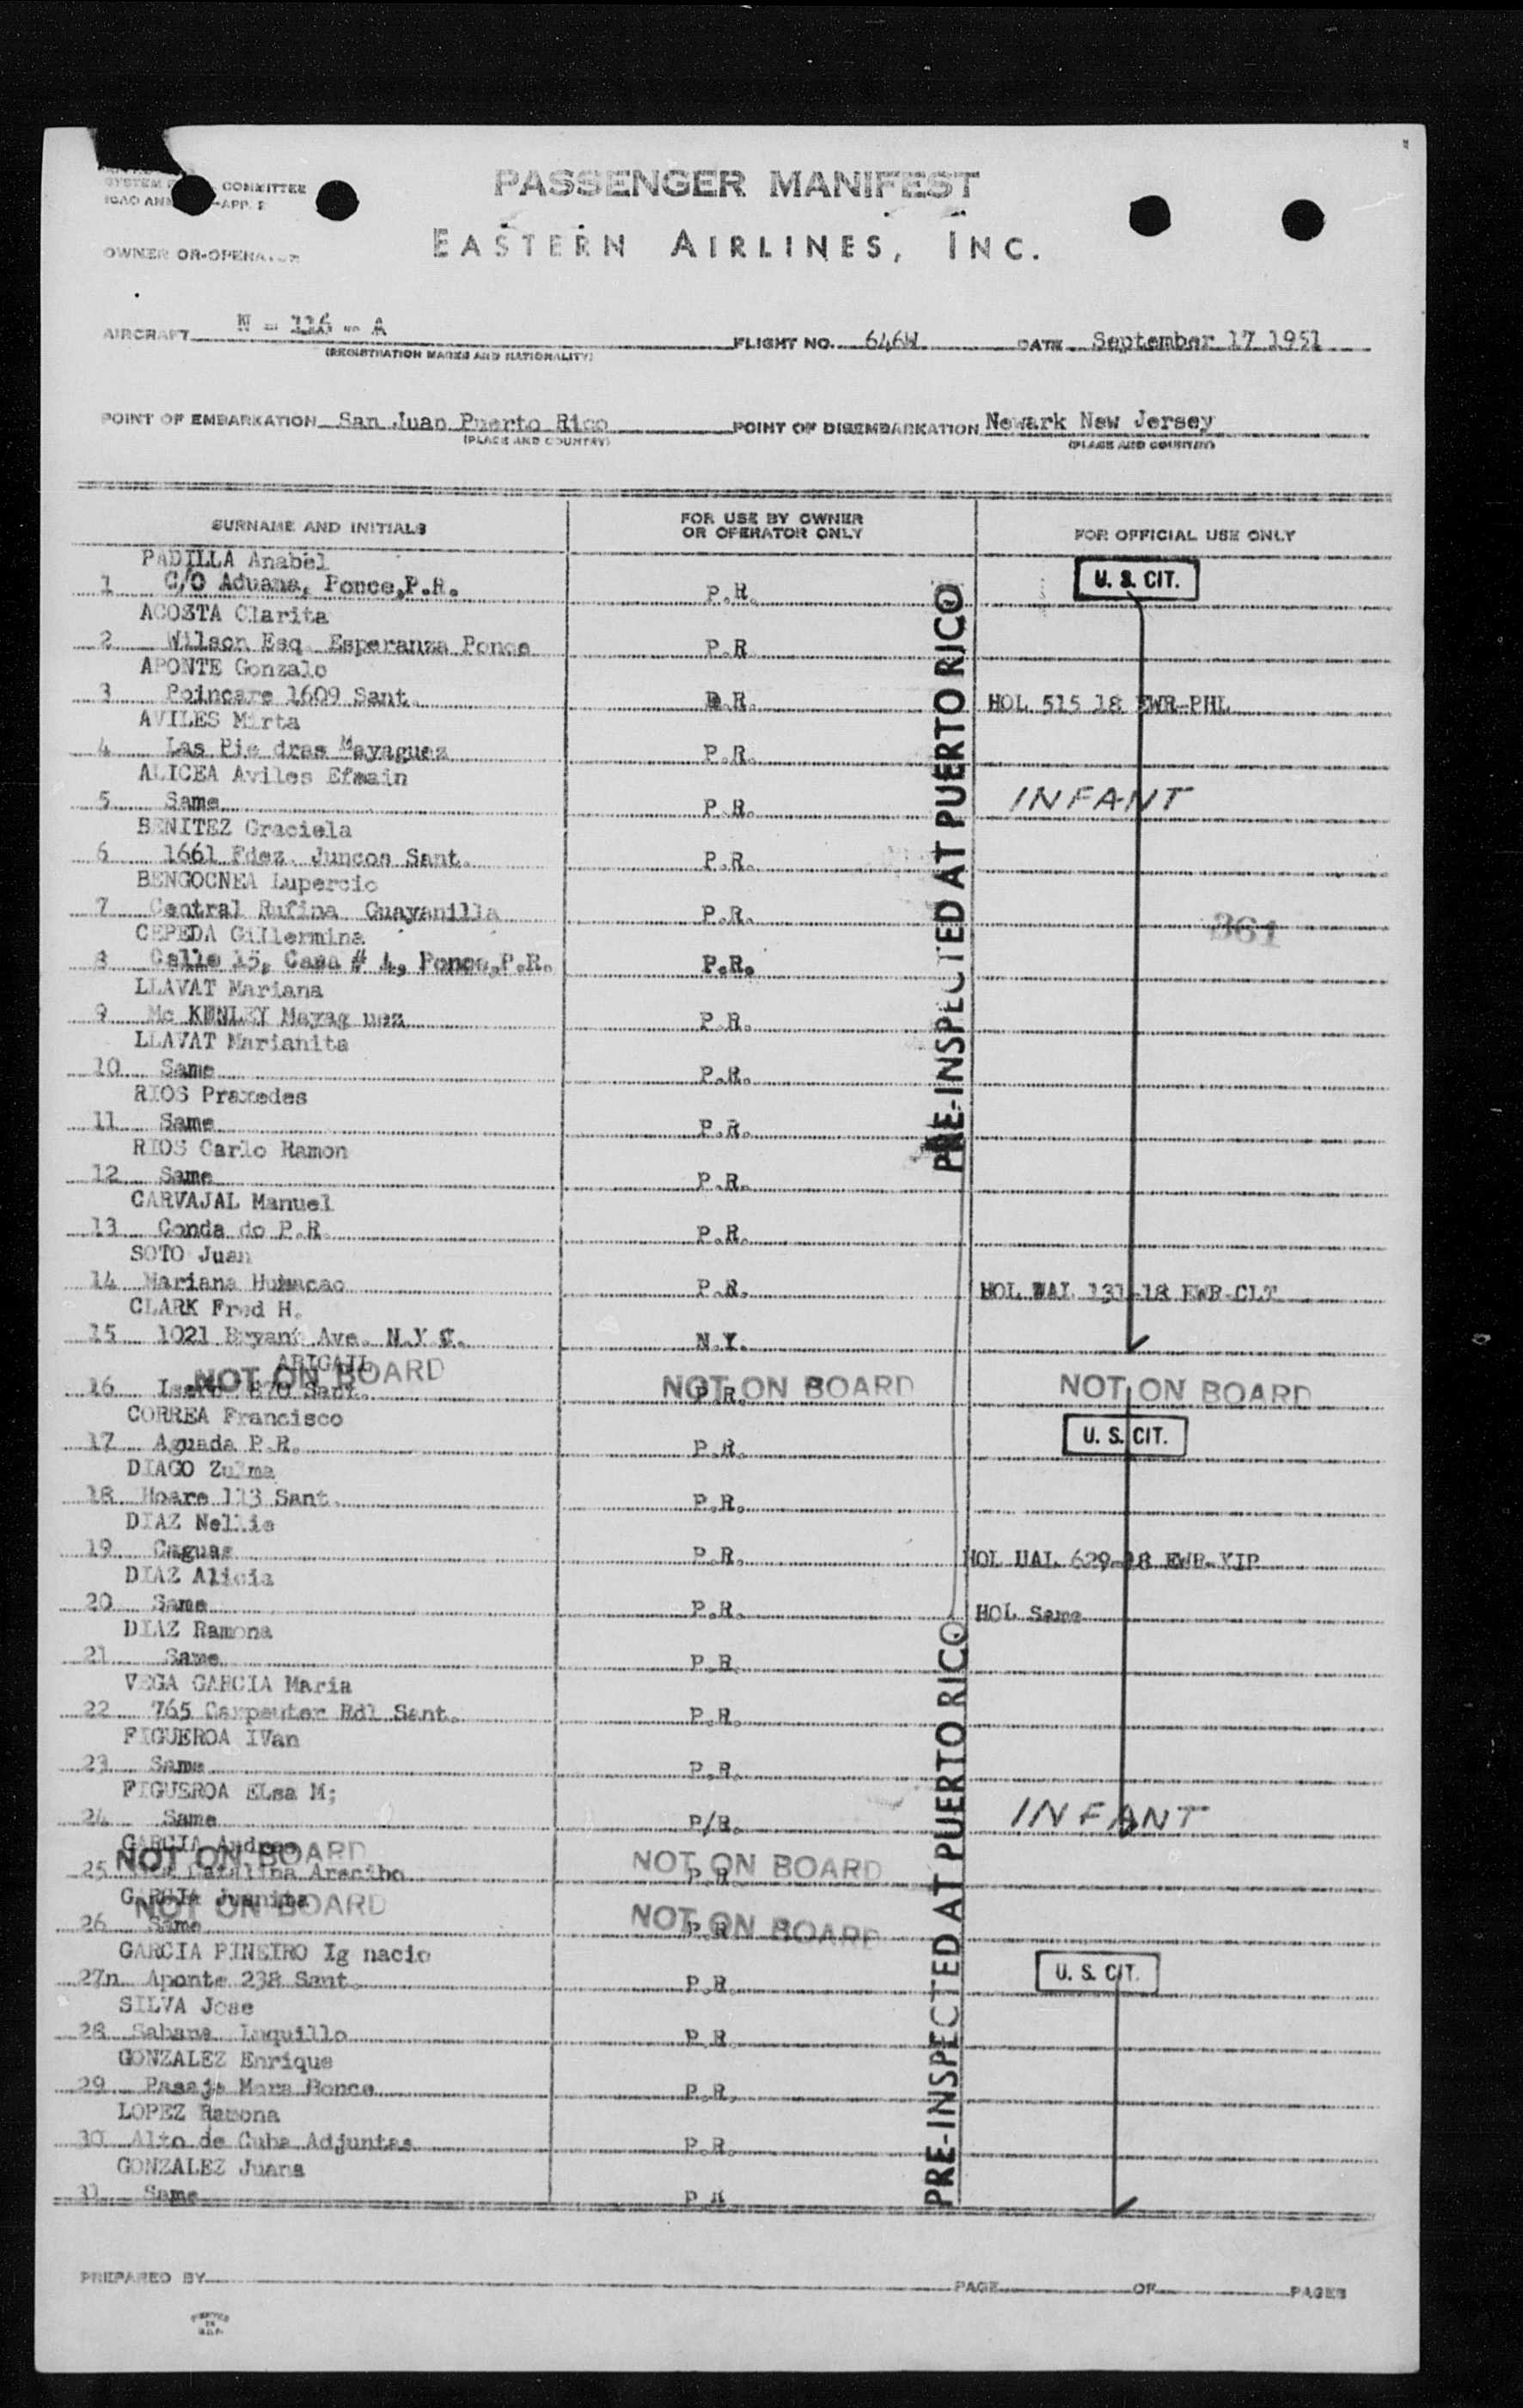 SYSTEM COMMITTEE
ICAO ANN -APP. 2
PASSENGER MANIFEST
OWNER OR OPERATOR
EASTERN AIRLINES, INC.
AIRCRAFT N - 116 - A
(REGISTRATION MARKS AND NATIONALITY)
FLIGHT NO. 646W
DATE September 17 1951
POINT OF EMBARKATION San Juan Puerto Rico
(PLACE AND COUNTRY)
POINT OF DISEMBARKATION Newark New Jersey
(PLACE AND COUNTRY)
SURNAME AND INITIALS
FOR USE BY OWNER
OR OPERATOR ONLY
FOR OFFICIAL USE ONLY
PADILLA Anabel
1 C/O Aduana, Ponce,P.R. P.R. U. S. CIT.
ACOSTA Clarita
2 Wilson Esq Esperanza Ponce P.R
APONTE Gonzalo
3 Poincare 1609 Sant. P.R. HOL 515 18 EWR-PHL
AVILES Mirta
4 Las Pie dras Mayaguez P.R.
ALICEA Aviles Efmain
5 Same P.R. INFANT
BENITEZ Graciela
6 1661 Fdez. Juncos Sant. P.R.
BENGOCNEA Lupercio
7 Central Rufina Guayanilla P.R. 361
CEPEDA Guillermina
8 Calle 15, Casa # 4, Ponce,P.R. P.R.
LLAVAT Mariana
9 Mc KENLEY Mayag uez P.R.
LLAVAT Marianita
10 Same P.R.
RIOS Praxedes
11 Same P.R.
RIOS Carlo Ramon
12 Same P.R.
CARVAJAL Manuel
13 Conda do P.R. P.R.
SOTO Juan
14 Mariana Humacao P.R. HOL 131-18 EWR-CLT
CLARK Fred H.
15 1021 Bryant Ave. N.Y.C. N.Y.
ABIGAIL
NOT ON BOARD NOT ON BOARD NOT ON BOARD
16 870 Sant. P.R.
CORREA Francisco
17 Aguada P.R. P.R. U. S. CIT.
DIAGO Zulma
18 Hoare 113 Sant. P.R.
DIAZ Nellie
19 Caguas P.R. HOL UAL 629-18 EWR-YIP
DIAZ Alicia
20 Same P.R. HOL Same
DIAZ Ramona
21 Same P.R.
VEGA GARCIA Maria
22 765 Carpenter Rdl Sant. P.R.
FIGUEROA IVan
23 Same P.R.
FIGUEROA ELsa M;
24 Same P/R. INFANT
GARCIA Andrea
NOT ON BOARD NOT ON BOARD
25 Catalina Arecibo P.R.
GARCIA Juanita
NOT ON BOARD NOT ON BOARD
26 Same P.R
GARCIA PINEIRO Ig nacio
27n Aponte 238 Sant. P.R. U. S. CIT.
SILVA Jose
28 Sabana Luquillo P.R
GONZALEZ Enrique
29 Pasaje Mora Ponce P.R.
LOPEZ Ramona
30 Alto de Cuba Adjuntas P.R.
GONZALEZ Juana
31 Same P R
PRE-INSPECTED AT PUERTO RICO
PRE-INSPECTED AT PUERTO RICO
PREPARED BY
PAGE OF PAGES
PRINTED
IN
U.S.A.